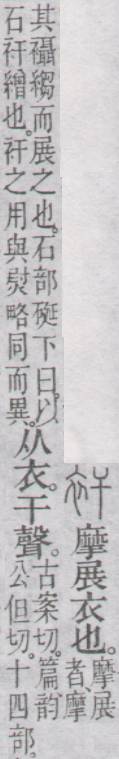 衦 摩展衣也。摩展
者、摩
其襵縐而展之也。石部硟下曰。以
石衦繒也。衦之用與熨略同而異。
从衣。干聲。
古案切。篇、韵
公但切。十四部。